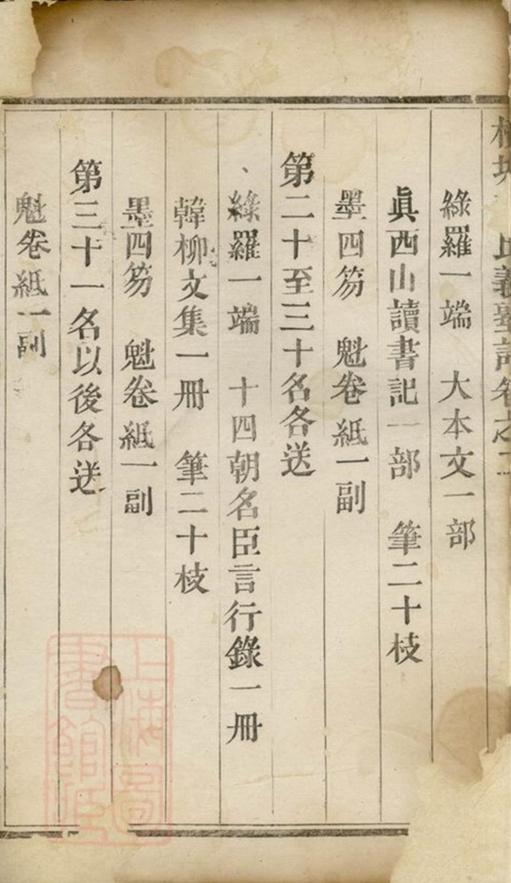 氏義塾記卷之二
綠羅一端 大本文一部
眞西山讀書記一部 筆二十枝
墨四笏 魁卷紙一副
第二十至三十名各送
綠羅一端 十四朝名臣言行錄一冊
韓柳文集一冊 筆二十枝
墨四笏 魁卷紙一副
第三十一名以後各送
魁卷紙一副
上海圖書館藏